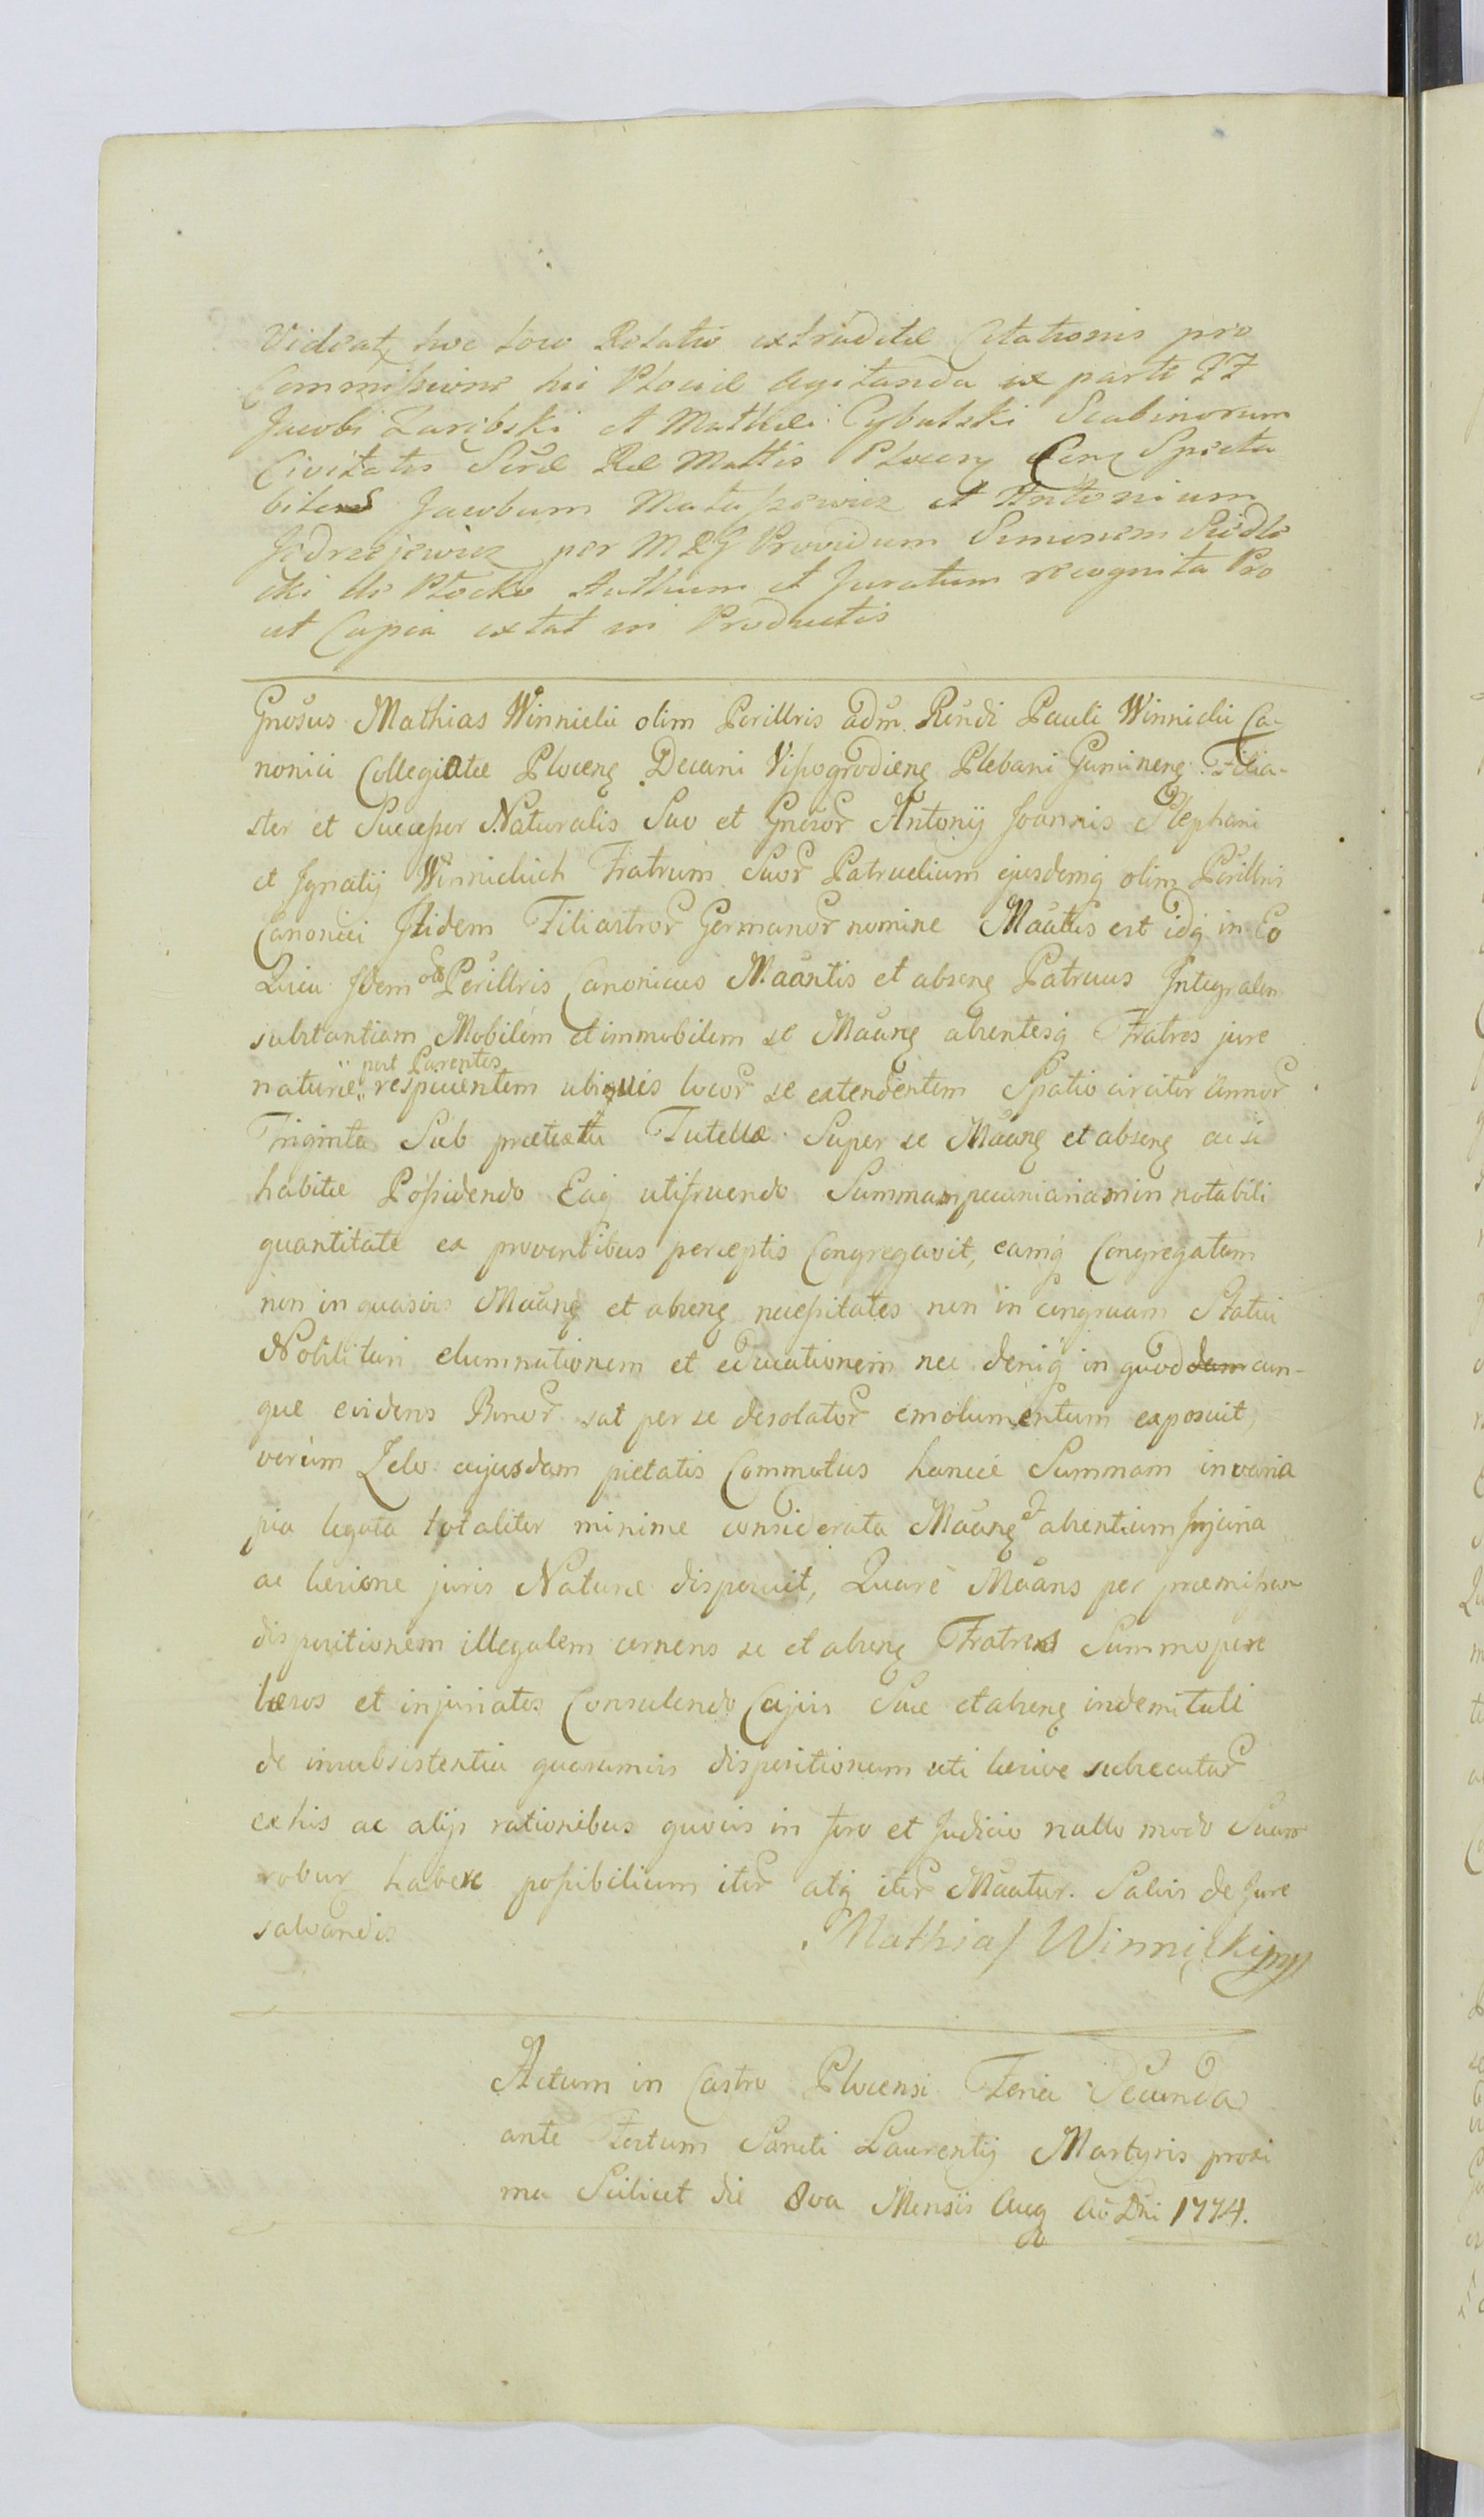 Videat hoc loco Relatio extraditæ Citationis pro
Commissione hic Plociæ agitanda ex parte FF
Jacobi Zaribski et Mathæi Cybulski Scabinorum
Civitatis Seræ Ræ Mattis Plocen Cen Specta
biles Jacobum Mataszewicz et Antonium
Jedrzejewicz per MRG Providum Simonem Siedle
cki de Płocko Authum et Juratum recognita Pro
ut Copia extat in Productis
Gnosus Mathias Winnicki olim Perillris adm Rendi Pauli Winnicki Ca-
nonici Collegiatæ Plocens Decani Vissogrodiens Plebani Guminens Filia-
ster et Successor Naturalis Suo et Gneror Antonij Joannis Stephani
et Ignatij Winnickich Fratrum Suor Patruelium ejusdemq olim Perillris
Canonici Itidem Filiastror Germanor nomine Maattis est idq in Eo
Quia Idem olim Perillris Canonicus Maantis et absens Patruus Integralem
substantiam Mobilem et immobilem se Maans absentesq Fratres jure
naturæ post Parentes respicientem ubiquis locor se extendentem Spatio circiter annor
Triginta Sub prætextu Tutellæ Super se Maans et absens ac si
habitæ Possidendo Eaq utifruendo Summam pecuniariam in notabili
quantitate ex proventibus perceptis Congregavit, eamq Congregatam
non in quasvis Maans et absens necessitates non in congruam Statui
Nobilitari elumnationem et educationem nec deniq in quoddam cun-
que evidens Bonor sat per se desolator emolumentum exposuit,
verum Zelo cujusdam pietatis Commotus hancce Summam in varia
pia legata totaliter minime considerata Maans et absentium Injuria
ac læsione juris Naturæ disposuit, Quare Maans per præmissam
dispositionem illegalem cernens se et absens Fratres Summopere
læsos et injuriatos Consulendo Cujvis Suæ et absens indemitati
de insubsistentia quarumvis dispositionum uti læsive subsecutar
ex his ac alijs rationibus quovis in foro et Judicio nullo modo Suum
robur habere possibilium iter atq iter Maatur. Salvis de Jure
salvandis
Mathias Winnicki mp
Actum in Castro Plocensi Feria Secunda
ante Festum Sancti Laurentij Martyris proxi
ma Scilicet die 8va Mensis Aug Ao Dni 1774.